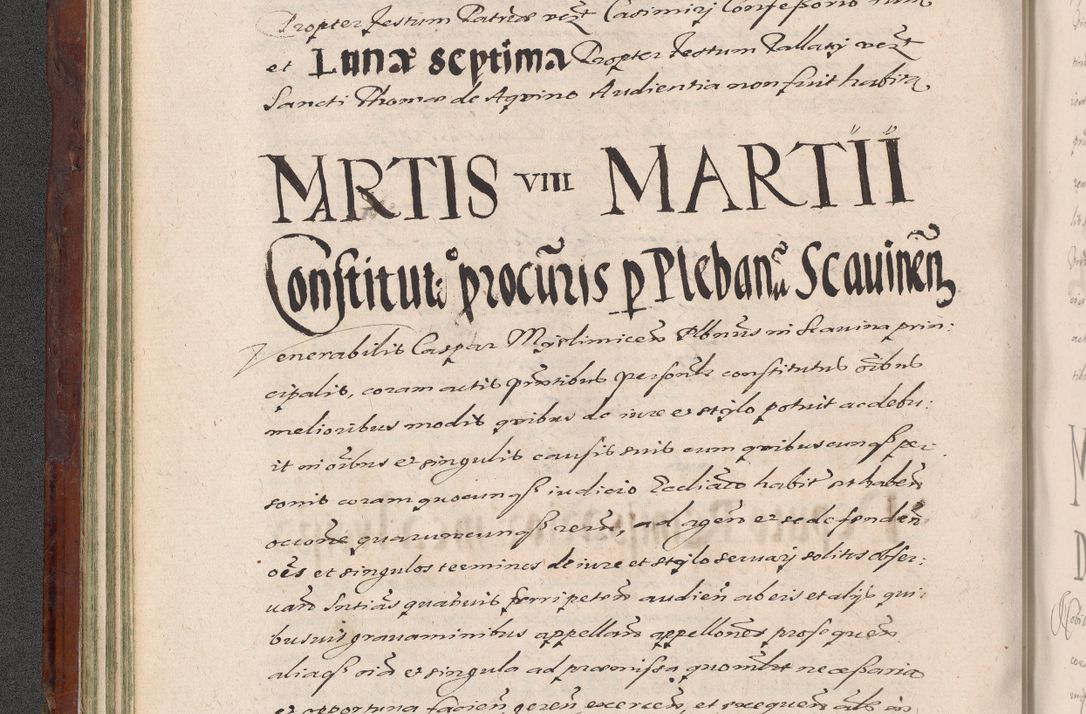 Propter festum Patriæ vezt Casimirj Confessoris
et Lunæ septima Propter festum Pallatij vezt
Sancti Thomæ de Aqvino Audientia non fuit habita
MARTIS VIII MARTII
Constitut: procuris p Plebanu Scauinen
Venerabilis Caspar Plbnus in Scauina prin:
cipalis, coram actis pñtibus personlr constitutus oibus
melioribus modis qvibus de iure et stylo potuit ac debu:
it in oibus et singulis causis suis cum qvibuscunqß per:
sonis coram quocunqß iudicio Eccliaco habit et haben
occone quarumcunqß rerum, ad agen et se defenden
oes et singulos terminos de iure et stylo seruarj solitos obser:
uan Sntias quasuis ferri peten audien ab eis et alijs qui:
busuis grauaminibus appellan appellones proseqven
aliaqß oia et singula ad præmissa quomlt necæssaria
et opportuna facien geren exercen, et exequen in